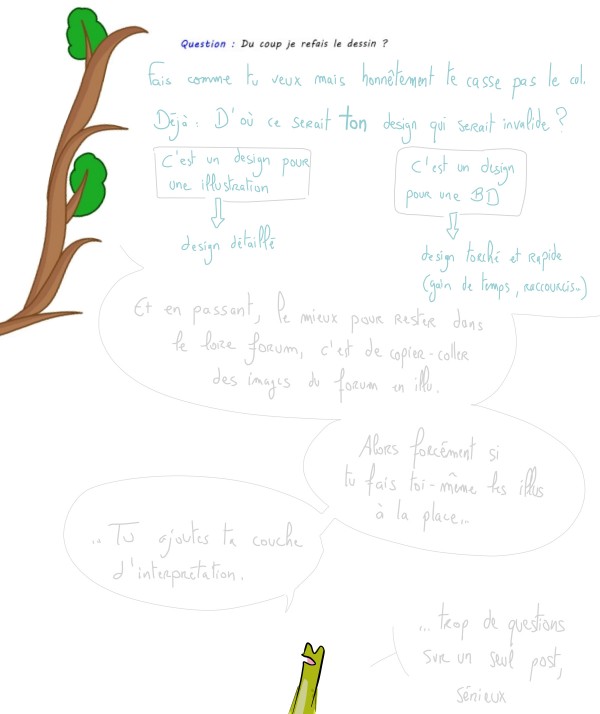 Question : Du coup je refais le dessin ?
Fais comme tu veux mais honnêtement te casse pas le col.
Déjà : D'où ce serait ton design qui serait invalide ?
C'est un design pour
une illustration
design détaillé
C'est un design
pour une BD
design torché et rapide
(gain de temps, raccourcis..)
Et en passant, le mieux pour rester dans
le lore forum, c'est de copier-coller
des images du forum en illu.
Alors forcément si
tu fais toi-même tes illus
à la place...
.. Tu ajoutes ta couche
d'interprétation.
... trop de questions
sur un seul post,
sérieux